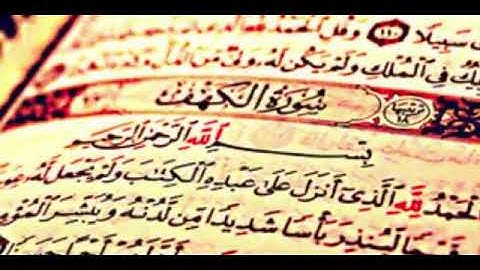 سَبِيلًا ١١٠ وَقُلِ
فِى ٱلْمُلْكِ وَلَمْ يَكُن لَّهُۥ وَلِىٌّ مِّنَ ٱلذُّلِّ
سُورَةُ الكَهْفِ ترتيبها ١٨
بِسْمِ ٱللَّهِ ٱلرَّحْمَٰنِ ٱلرَّحِيمِ
ٱلْحَمْدُ لِلَّهِ ٱلَّذِىٓ أَنزَلَ عَلَىٰ عَبْدِهِ ٱلْكِتَٰبَ وَلَمْ يَجْعَل لَّهُۥ
قَيِّمًا لِّيُنذِرَ بَأْسًا شَدِيدًا مِّن لَّدُنْهُ وَيُبَشِّرَ